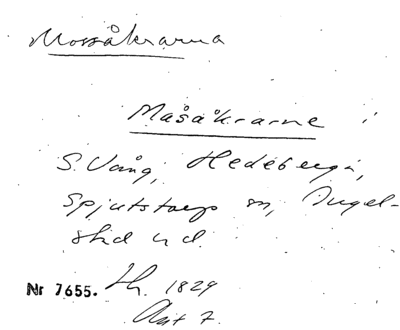 Mossåkrarna
Måsåkrarne i
S. Vång, Hedeberga,
Spjutstorps sn, Ingel-
stad hd.
Nr 7655. Lh. 1829
Akt 7.